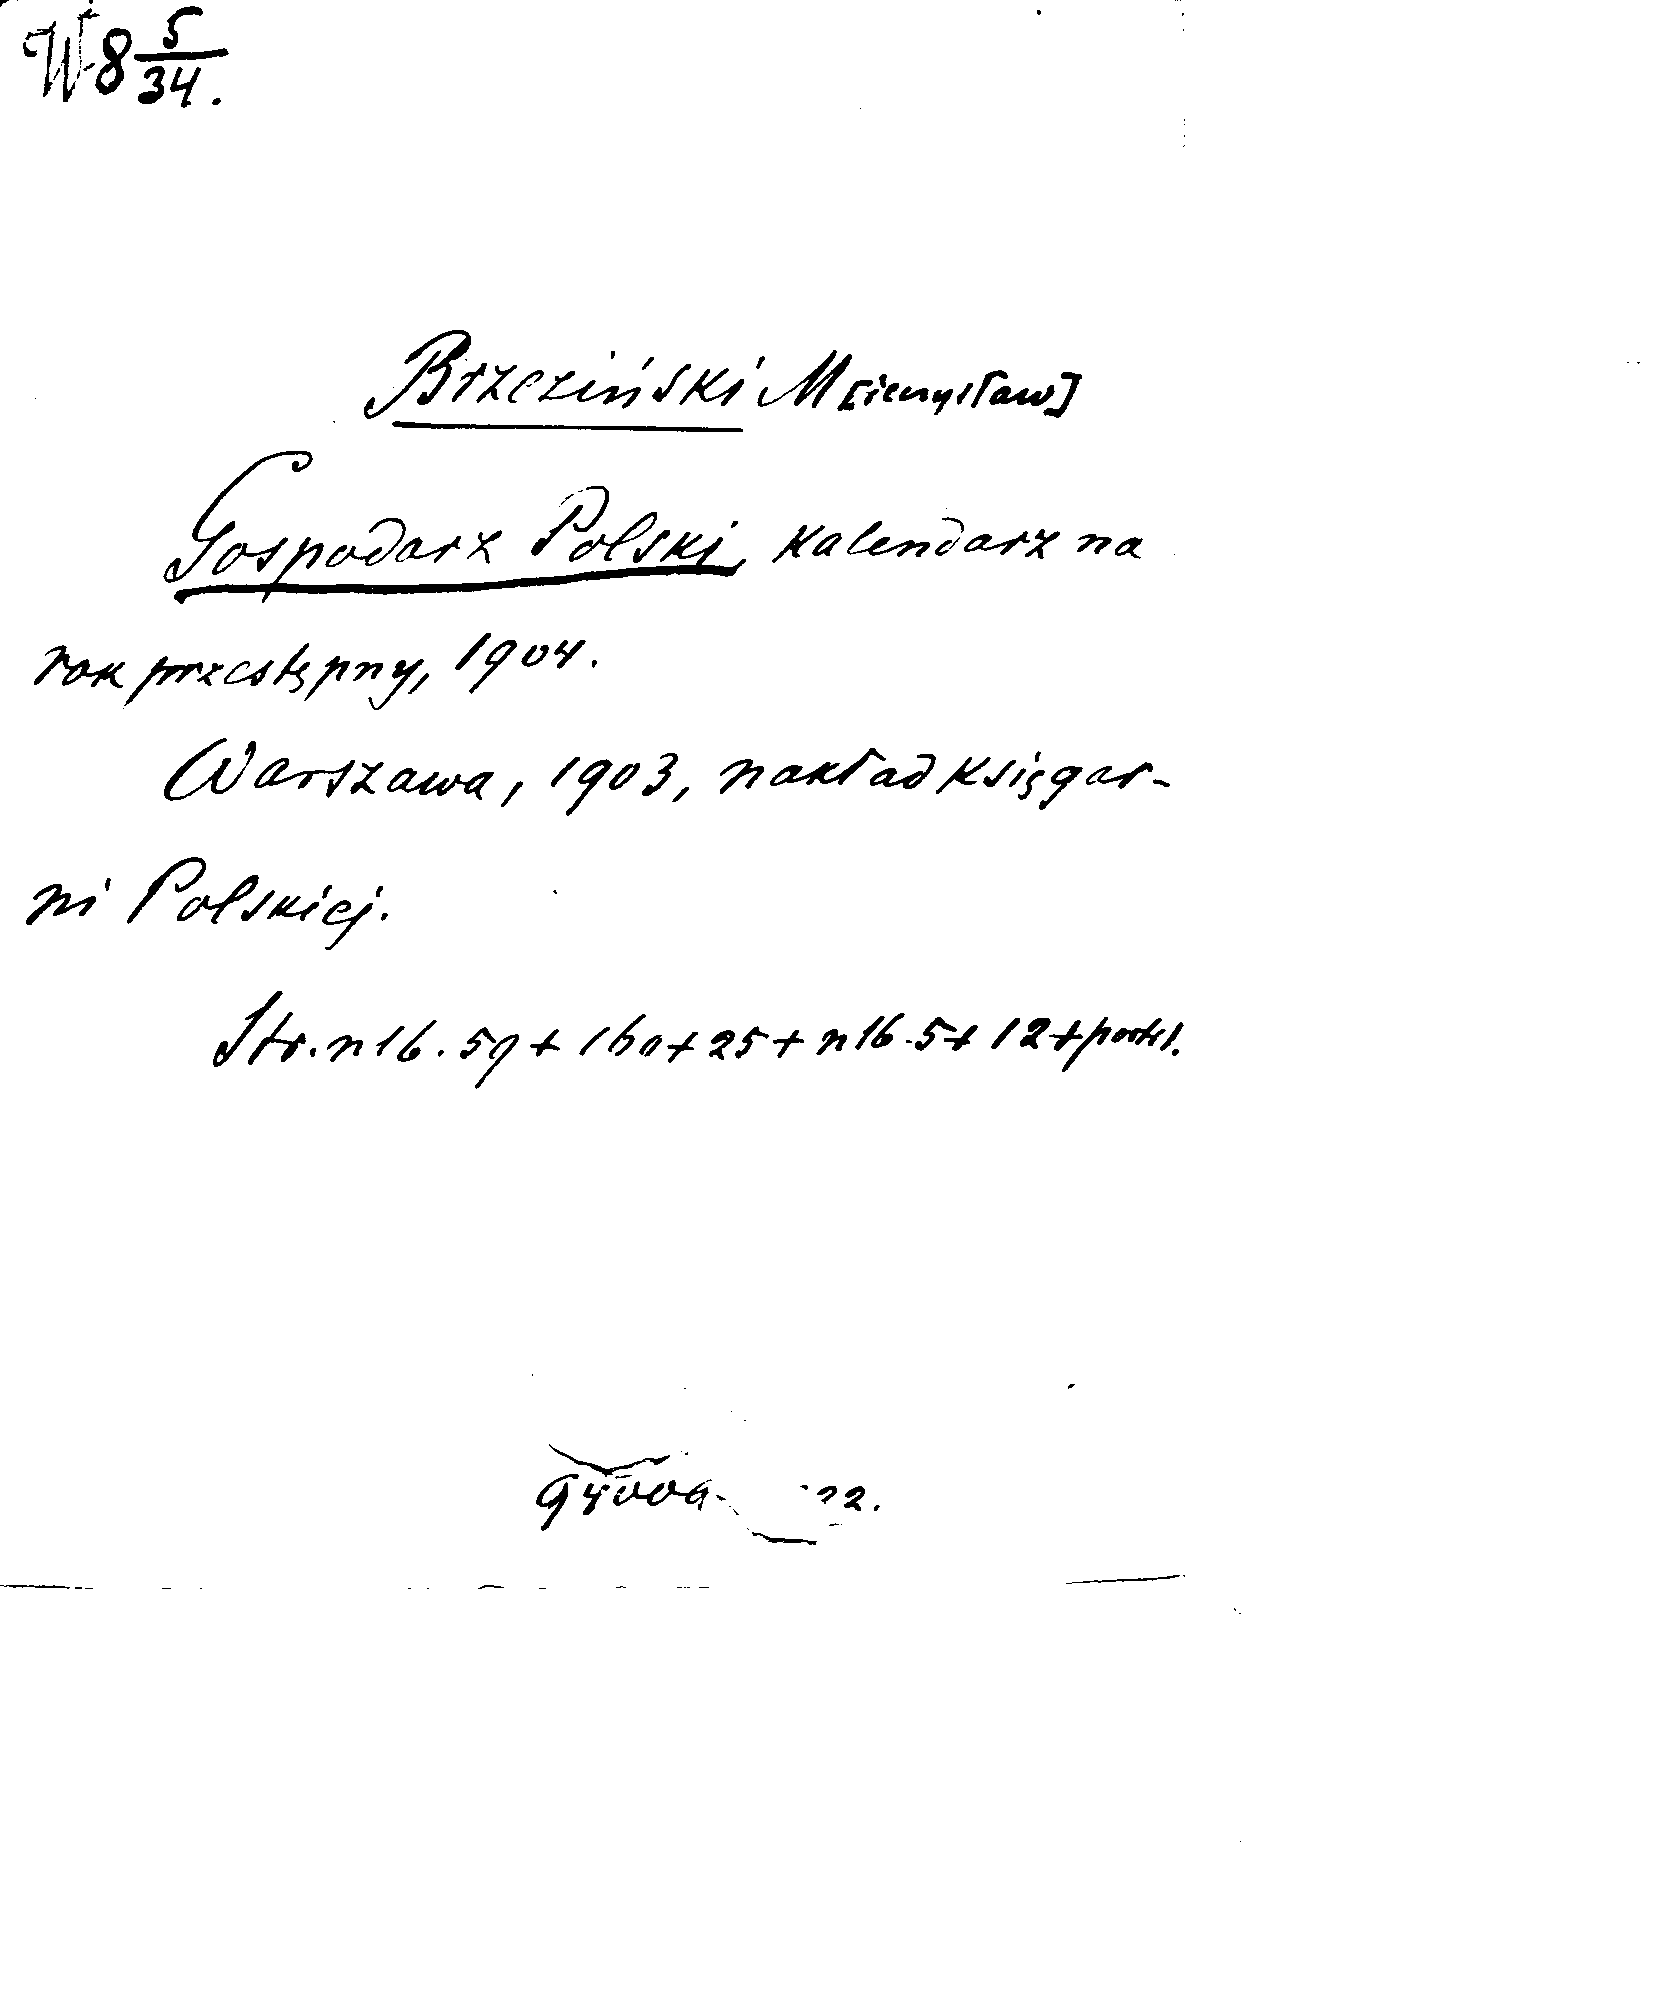 W 8 5/34.
Brzeziński M[ieczysław]
Gospodarz Polski, kalendarz na
rok przestępny, 1904.
Warszawa, 1903, nakład księgar-
ni Polskiej.
Str. nlb. 59 + 160 + 25 + nlb. 5 + 12 + portr.